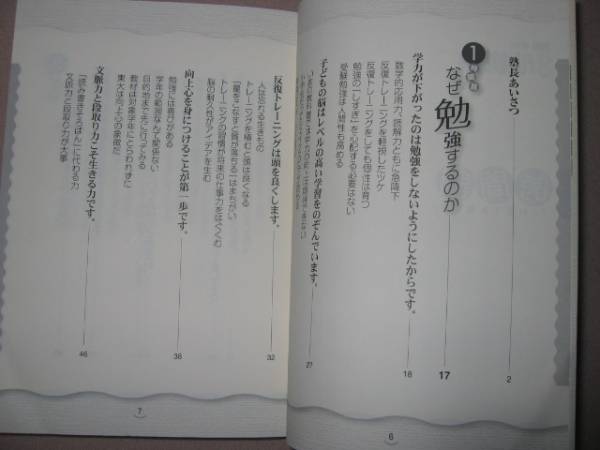 塾長あいさつ
2
1
なぜ勉強するのか
17
学力が下がったのは勉強をしないようにしたからです。
18
数学的応用力、読解力ともに急降下
反復トレーニングを軽視したツケ
反復トレーニングをしても個性は育つ
勉強の「しすぎ」を心配する必要はない
受験勉強は人間性も高める
子どもの脳はレベルの高い学習をのぞんでいます。
27
反復トレーニングは頭を良くします。
32
人は忘れる生きもの
トレーニングを積むと頭は良くなる
「量をこなすと質が落ちる」はまちがい
トレーニングの習慣が将来の仕事力をはぐくむ
脳の耐久性がアイデアを生む
向上心を身につけることが第一歩です。
38
勉強には喜びがある
学年の範囲なんて関係ない
目的地まで先に行ってみる
教材は対象学年にとらわれずに
東大は向上心の象徴だ
文脈力と段取り力こそ生きる力です。
46
「読み書きそろばん」に代わる力
文脈力と段取り力が大事
6
7